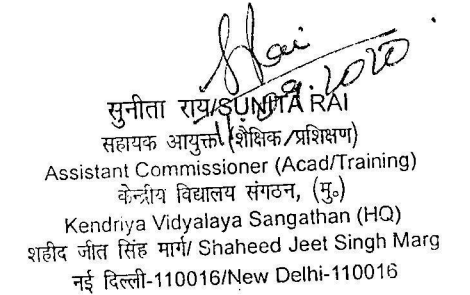 सुनीता राय/SUNITA RAI
सहायक आयुक्त (शैक्षिक/प्रशिक्षण)
Assistant Commissioner (Acad/Training)
केन्द्रीय विद्यालय संगठन, (मु०)
Kendriya Vidyalaya Sangathan (HQ)
शहीद जीत सिंह मार्ग/ Shaheed Jeet Singh Marg
नई दिल्ली-110016/New Delhi-110016